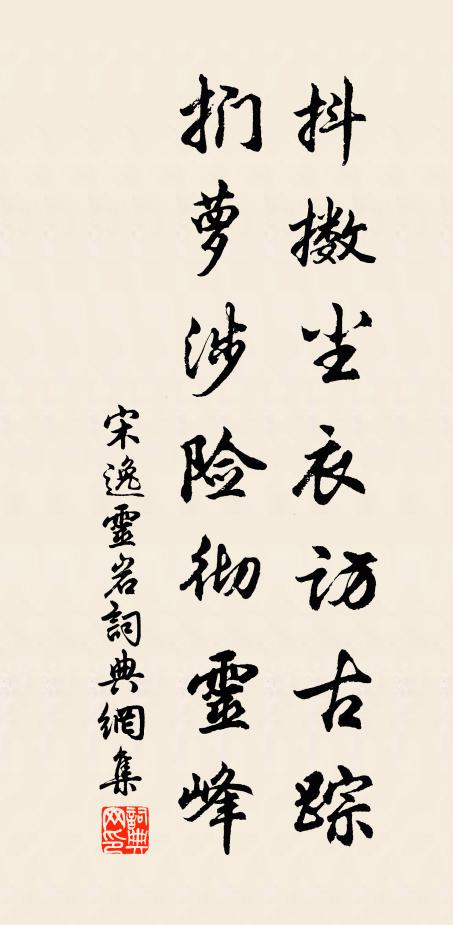 抖擞尘衣访古踪
扪萝涉险彻灵峰
宋逸靈岩詞典網集
詞典网印